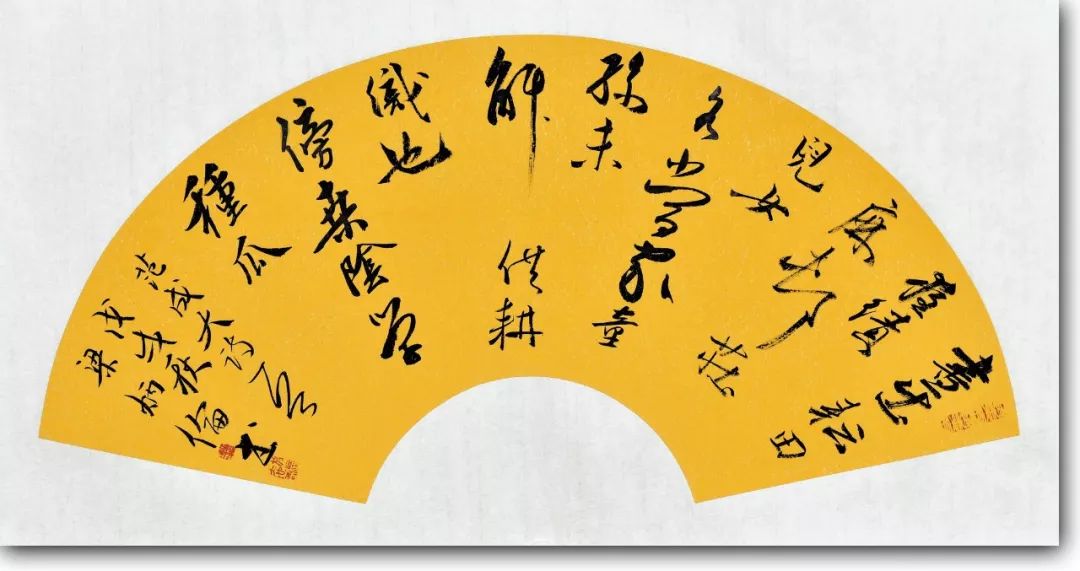 晝出耘田
夜績
麻村莊
兒女
各當家童
孫未
解供耕
織也
傍桑陰學
種瓜
范成大詩
戊戌秋
梁炳倫书